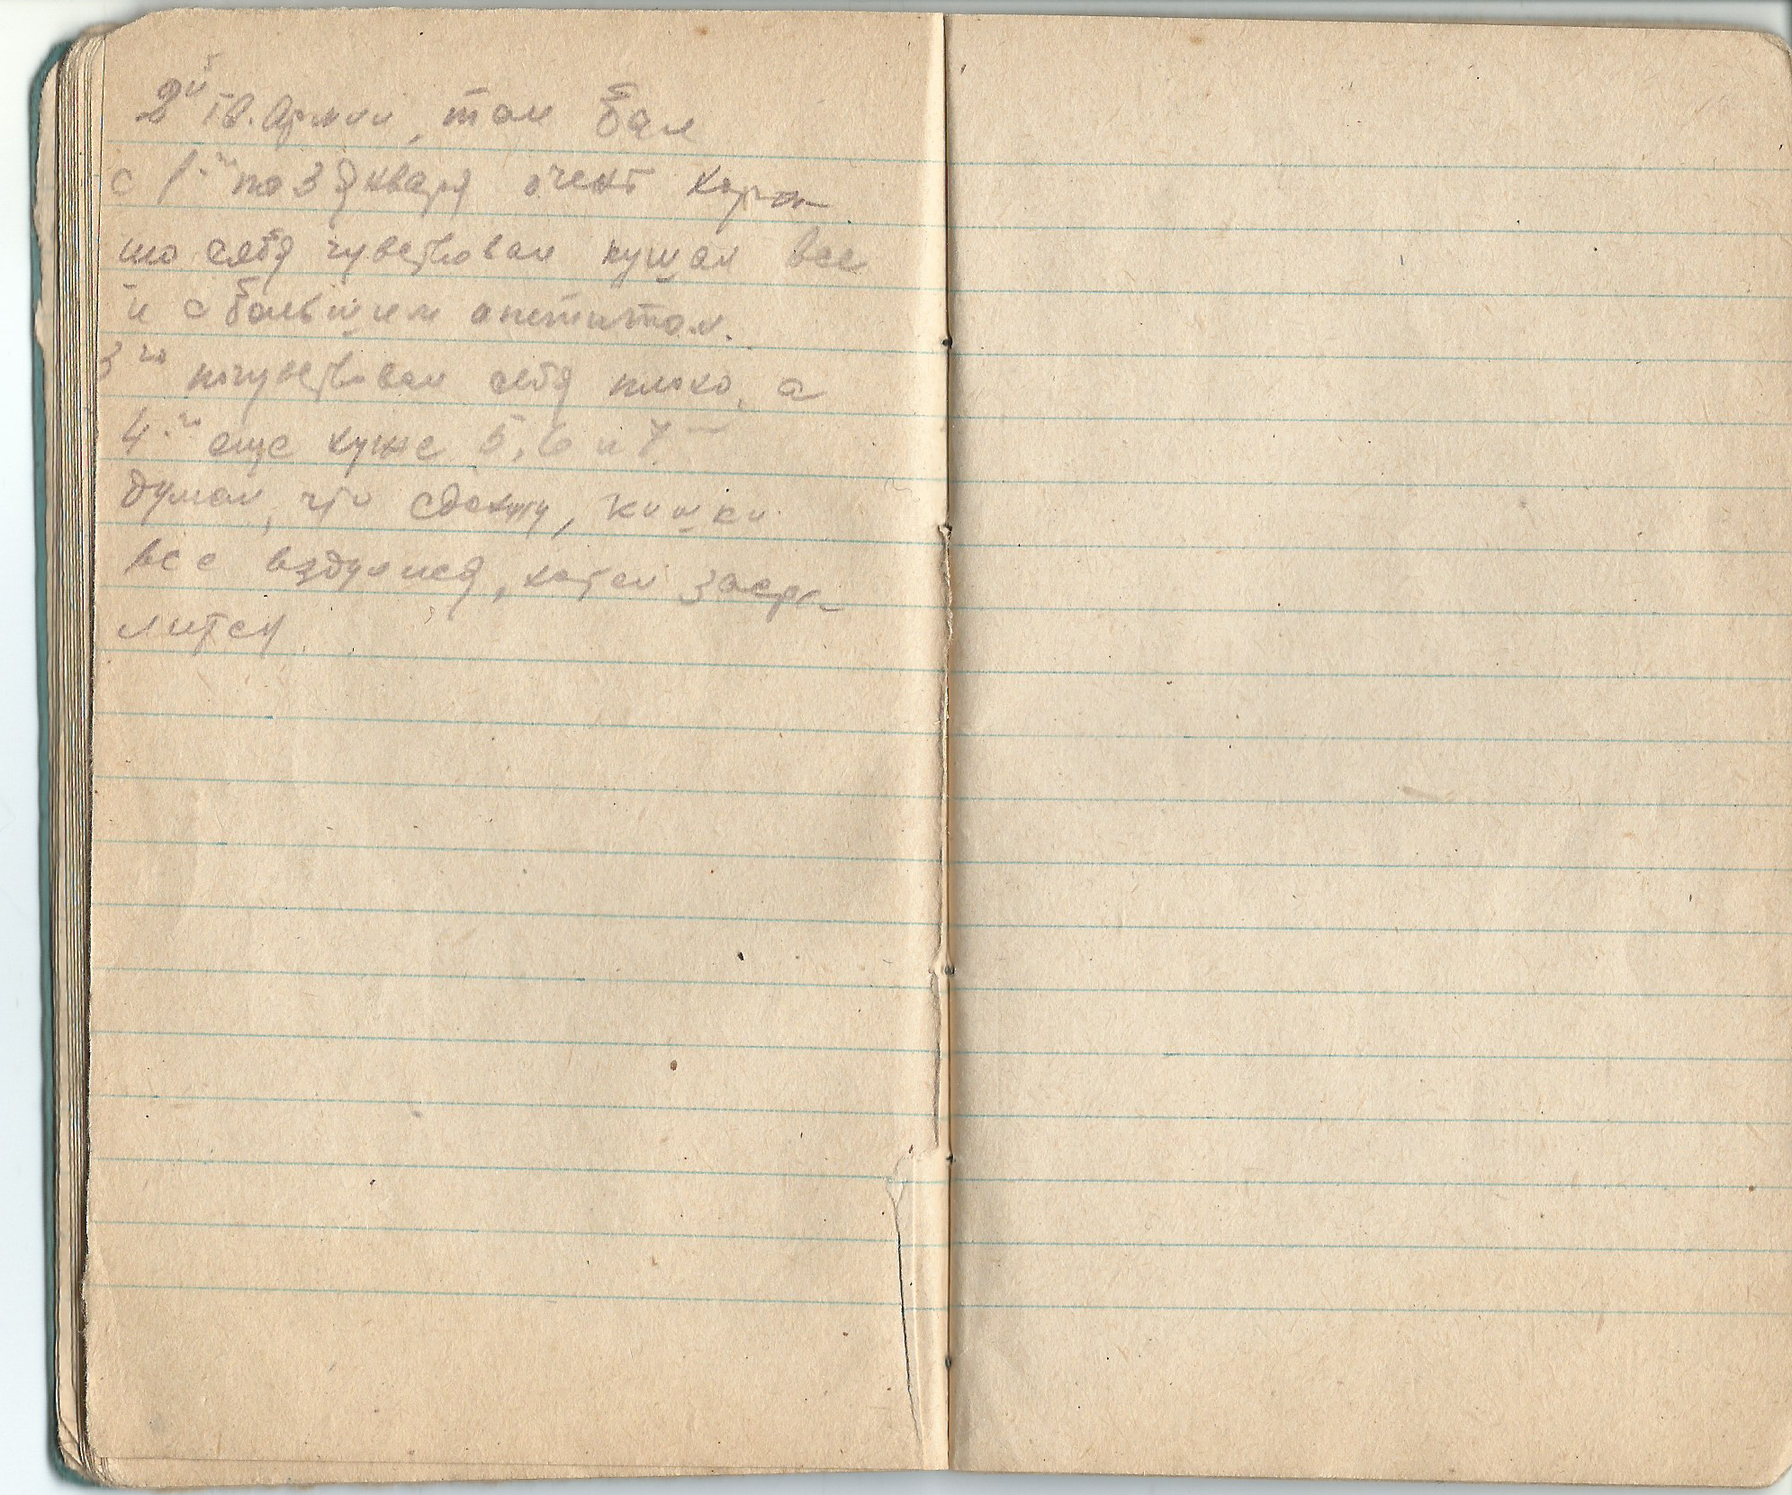 2й Гв. Армии, там был
с 1-го по 3 января очень хоро-
шо себя чувствовал кушал все
и с большим апетитом.
3го почувствовал себя плохо, а
4-го еще хуже 5, 6 и 7
думал, что сдохну, кишки
все вздулися, хотел застре-
лится.